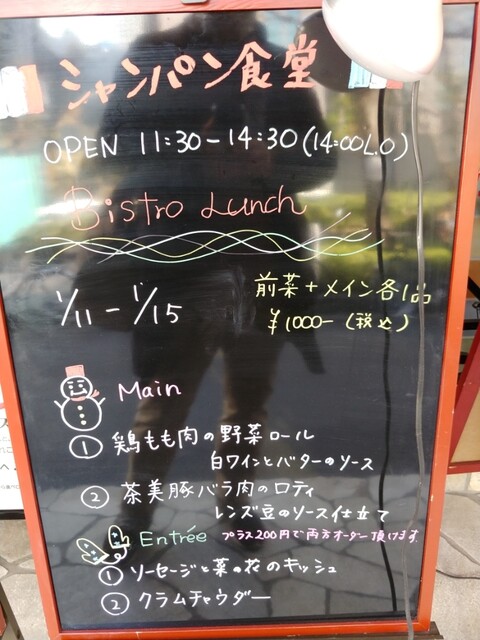 シャンパン食堂
OPEN 11:30-14:30(14:00L.O)
Bistro Lunch
1/11-1/15
前菜+メイン各1品
¥1000-(税込)
Main
① 鶏もも肉の野菜ロール
白ワインとバターのソース
② 茶美豚バラ肉のロティ
レンズ豆のソース仕立て
Entrée プラス200円で両方オーダー頂けます。
① ソーセージと菜の花のキッシュ
② クラムチャウダー